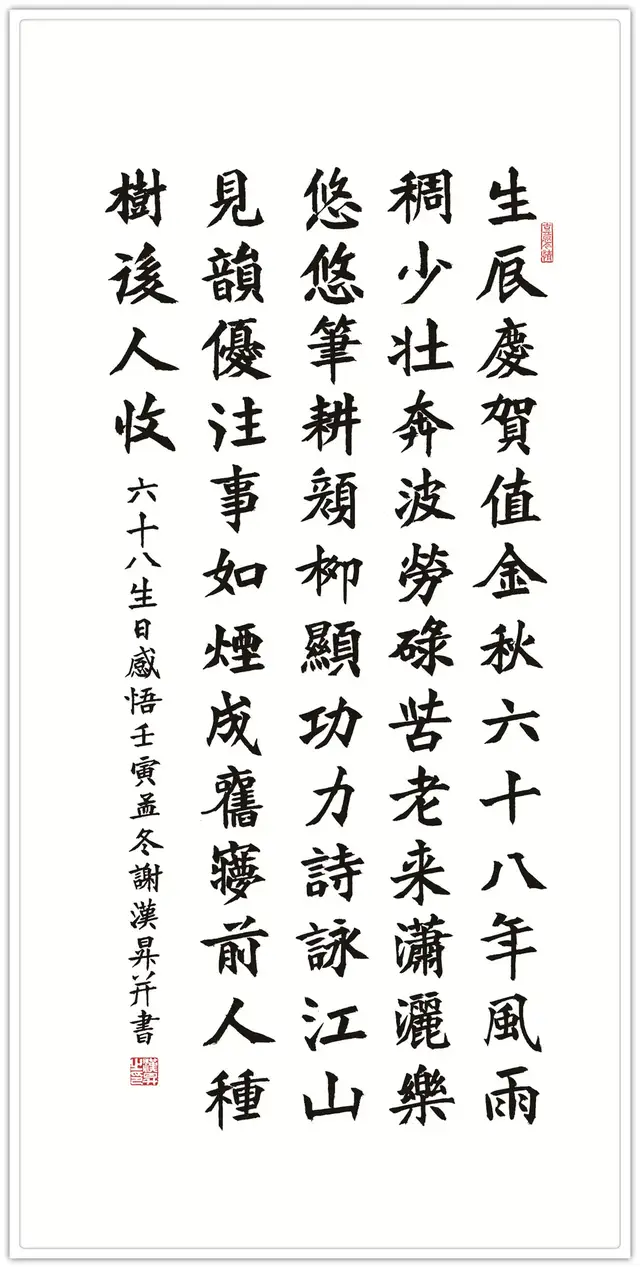 生辰慶賀值金秋六十八年風雨
稠少壯奔波勞碌苦老来瀟灑樂
悠悠筆耕顏柳顯功力詩詠江山
見韻優往事如煙成舊夢前人種
樹後人收
六十八生日感悟壬寅孟冬謝漢昇并書